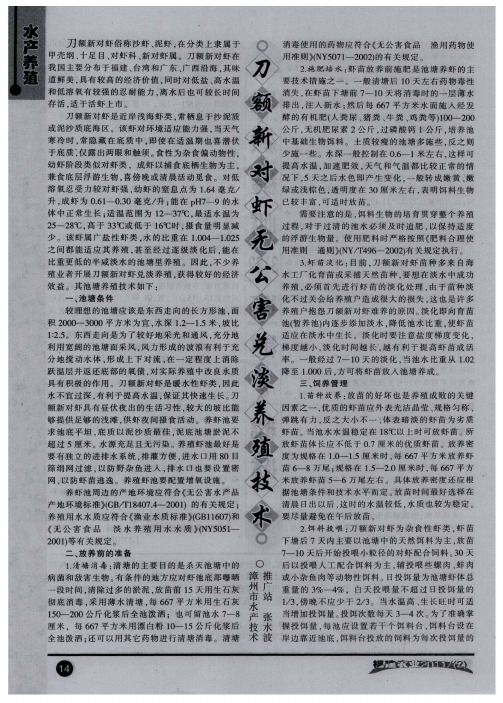 水产养殖
刀额新对虾无公害兑淡养殖技术
○漳州市水产技术推广站 张水波
刀额新对虾俗称沙虾,泥虾,在分类上隶属于
甲壳纲,十足目,对虾科,新对虾属。刀额新对虾在
我国主要分布于福建、台湾和广东、广西沿海,其味
道鲜美,具有较高的经济价值,同时对低盐、高水温
和低溶氧有较强的忍耐能力,离水后也可较长时间
存活,适于活虾上市。
刀额新对虾是近岸浅海虾类,常栖息于沙泥质
或泥沙质底海区。该虾对环境适应能力强,当天气
寒冷时,常隐藏在底质中,即使在适温期也喜潜伏
于底质,仅露出两眼和触须。食性为杂食偏动物性,
幼虾阶段类似对虾类,成虾以捕食底栖生物为主,
兼食底层浮游生物,喜傍晚或清晨活动觅食。对低
溶氧忍受力较对虾强,幼虾的窒息点为 1.64 毫克/
升,成虾为 0.61—0.30 毫克/升;能在 pH7—9 的水
体中正常生长;适温范围为 12—37℃,最适水温为
25—28℃,高于 33℃或低于 16℃时,摄食量明显减
少。该虾属广盐性虾类,水的比重在 1.004—1.025
之间都能适应其养殖,甚至经过逐级淡化后,能在
比重更低的半咸淡水的池塘里养殖。因此,不少养
殖业者开展刀额新对虾兑淡养殖,获得较好的经济
效益。其池塘养殖技术如下:
一、池塘条件
较理想的池塘应该是东西走向的长方形池,面
积 2000—3000 平方米为宜,水深 1.2—1.5 米,坡比
1:2.5。东西走向是为了较好地采光和通风,充分地
利用宽阔的池塘面采风,风力形成的波浪有利于充
分地搅动水体,形成上下对流,在一定程度上消除
跃温层并返还底部的氧债,对实际养殖中改良水质
具有积极的作用。刀额新对虾是暖水性虾类,因此
水不宜过深,有利于提高水温,保证其快速生长。刀
额新对虾具有昼伏夜出的生活习性,较大的坡比能
够提供足够的浅滩,供虾夜间摄食活动。养虾池要
求池底平坦,底质以泥沙质最佳,泥底池塘淤泥不
超过 5 厘米。水源充足且无污染。养殖虾池最好是
要有独立的进排水系统,排灌方便,进水口用 80 目
筛绢网过滤,以防野杂鱼进入,排水口也要设置密
网,以防虾苗逃逸。养殖虾池要配置增氧设施。
养虾池周边的产地环境应符合《无公害水产品
产地环境标准》(GB/T18407.4—2001) 的有关规定;
养殖用水水质应符合《渔业水质标准》(GB11607)和
《无公害食品 淡水养殖用水水质》(NY5051—
2001)等有关规定。
二、放养前的准备
1.清塘消毒:清塘的主要目的是杀灭池塘中的
病菌和敌害生物。有条件的地方应对虾池底部曝晒
一段时间,清除过多的淤泥,放苗前 15 天用生石灰
彻底消毒,采用薄水清塘,每 667 平方米用生石灰
150—200 公斤化浆后全池泼洒;也可留池水 7—8
厘米,每 667 平方米用漂白粉 10—15 公斤化浆后
全池泼洒;还可以用其它药物进行清塘消毒。清塘
消毒使用的药物应符合《无公害食品 渔用药物使
用准则》(NY5071—2002)的有关规定。
2.施肥培水:虾苗放养前施肥是池塘养虾的主
要技术措施之一。一般清塘后 10 天左右药物毒性
消失,在虾苗下塘前 7—10 天将消毒时的一层薄水
排出,注入新水;然后每 667 平方米水面施入经发
酵的有机肥(人类尿、猪粪、牛粪、鸡粪等)100—200
公斤,无机肥尿素 2 公斤,过磷酸钙 1 公斤,培养池
中基础生物饵料。土质较瘦的池塘多施些,反之则
少施一些。水深一般控制在 0.6—1 米左右,这样可
提高水温,加速肥效。天气和气温都比较正常的情
况下,5 天之后水色即产生变化,一般转成嫩黄、嫩
绿或浅棕色,透明度在 30 厘米左右,表明饵料生物
已较丰富,可适时放苗。
需要注意的是,饵料生物的培育贯穿整个养殖
过程,对于过清的池水必须及时追肥,以保持适度
的浮游生物量。使用肥料时严格按照《肥料合理使
用准则 通则》(NY/T496—2002)有关规定执行。
3.虾苗淡化:目前,刀额新对虾苗种多来自海
水工厂化育苗或采捕天然苗种,要想在淡水中成功
养殖,必须首先进行虾苗的淡化处理,由于苗种淡
化不过关会给养殖户造成很大的损失,这也是许多
养殖户抱怨刀额新对虾难养的原因。淡化即向育苗
池(暂养池)内逐步添加淡水,降低池水比重,使虾苗
适应在淡水中生长。淡化时要注意盐度梯度变化,
梯度越小、淡化时间越长,越有利于提高虾苗成活
率。一般经过 7—10 天的淡化,当池水比重从 1.02
降至 1.000 后,方可将虾苗放入池塘养成。
三、饲养管理
1.苗种放养:放苗的好坏也是养殖成败的关键
因素之一,优质的虾苗应外表光洁晶莹、规格匀称、
弹跳有力,反之大小不一、体表暗淡的虾苗为劣质
虾苗。当池水水温稳定在 18℃以上时可放虾苗。所
放虾苗体长应不低于 0.7 厘米的优质虾苗。放养密
度为规格在 1.0—1.5 厘米时,每 667 平方米放养虾
苗 6—8 万尾;规格在 1.5—2.0 厘米时,每 667 平方
米放养虾苗 5—6 万尾左右。具体放养密度还应根
据池塘条件和技术水平而定。放苗时间最好选择在
清晨日出以后,这时的水温较低,水质也较为稳定。
要尽量避免在午后放苗。
2.饵料投喂:刀额新对虾为杂食性虾类,虾苗
下塘后 7 天内主要以池塘中的天然饵料为主,放苗
7—10 天后开始投喂小粒径的对虾配合饲料。30 天
后以投喂人工配合饵料为主,辅投喂些螺肉、鲜肉
或小杂鱼肉等动物性饵料。日投饵量为池塘虾体总
重量的 3%—4%。白天投喂量不超过日投饵量的
1/3,傍晚不应少于 2/3。当水温高、生长旺时可适
当增加投饵量。投饵次数每天 3—4 次。为了准确掌
握投饵量,每池应设置若干个饵料台,饵料台设在
岸边靠近池底,饵料台投放的饲料为每次投饵量的
14